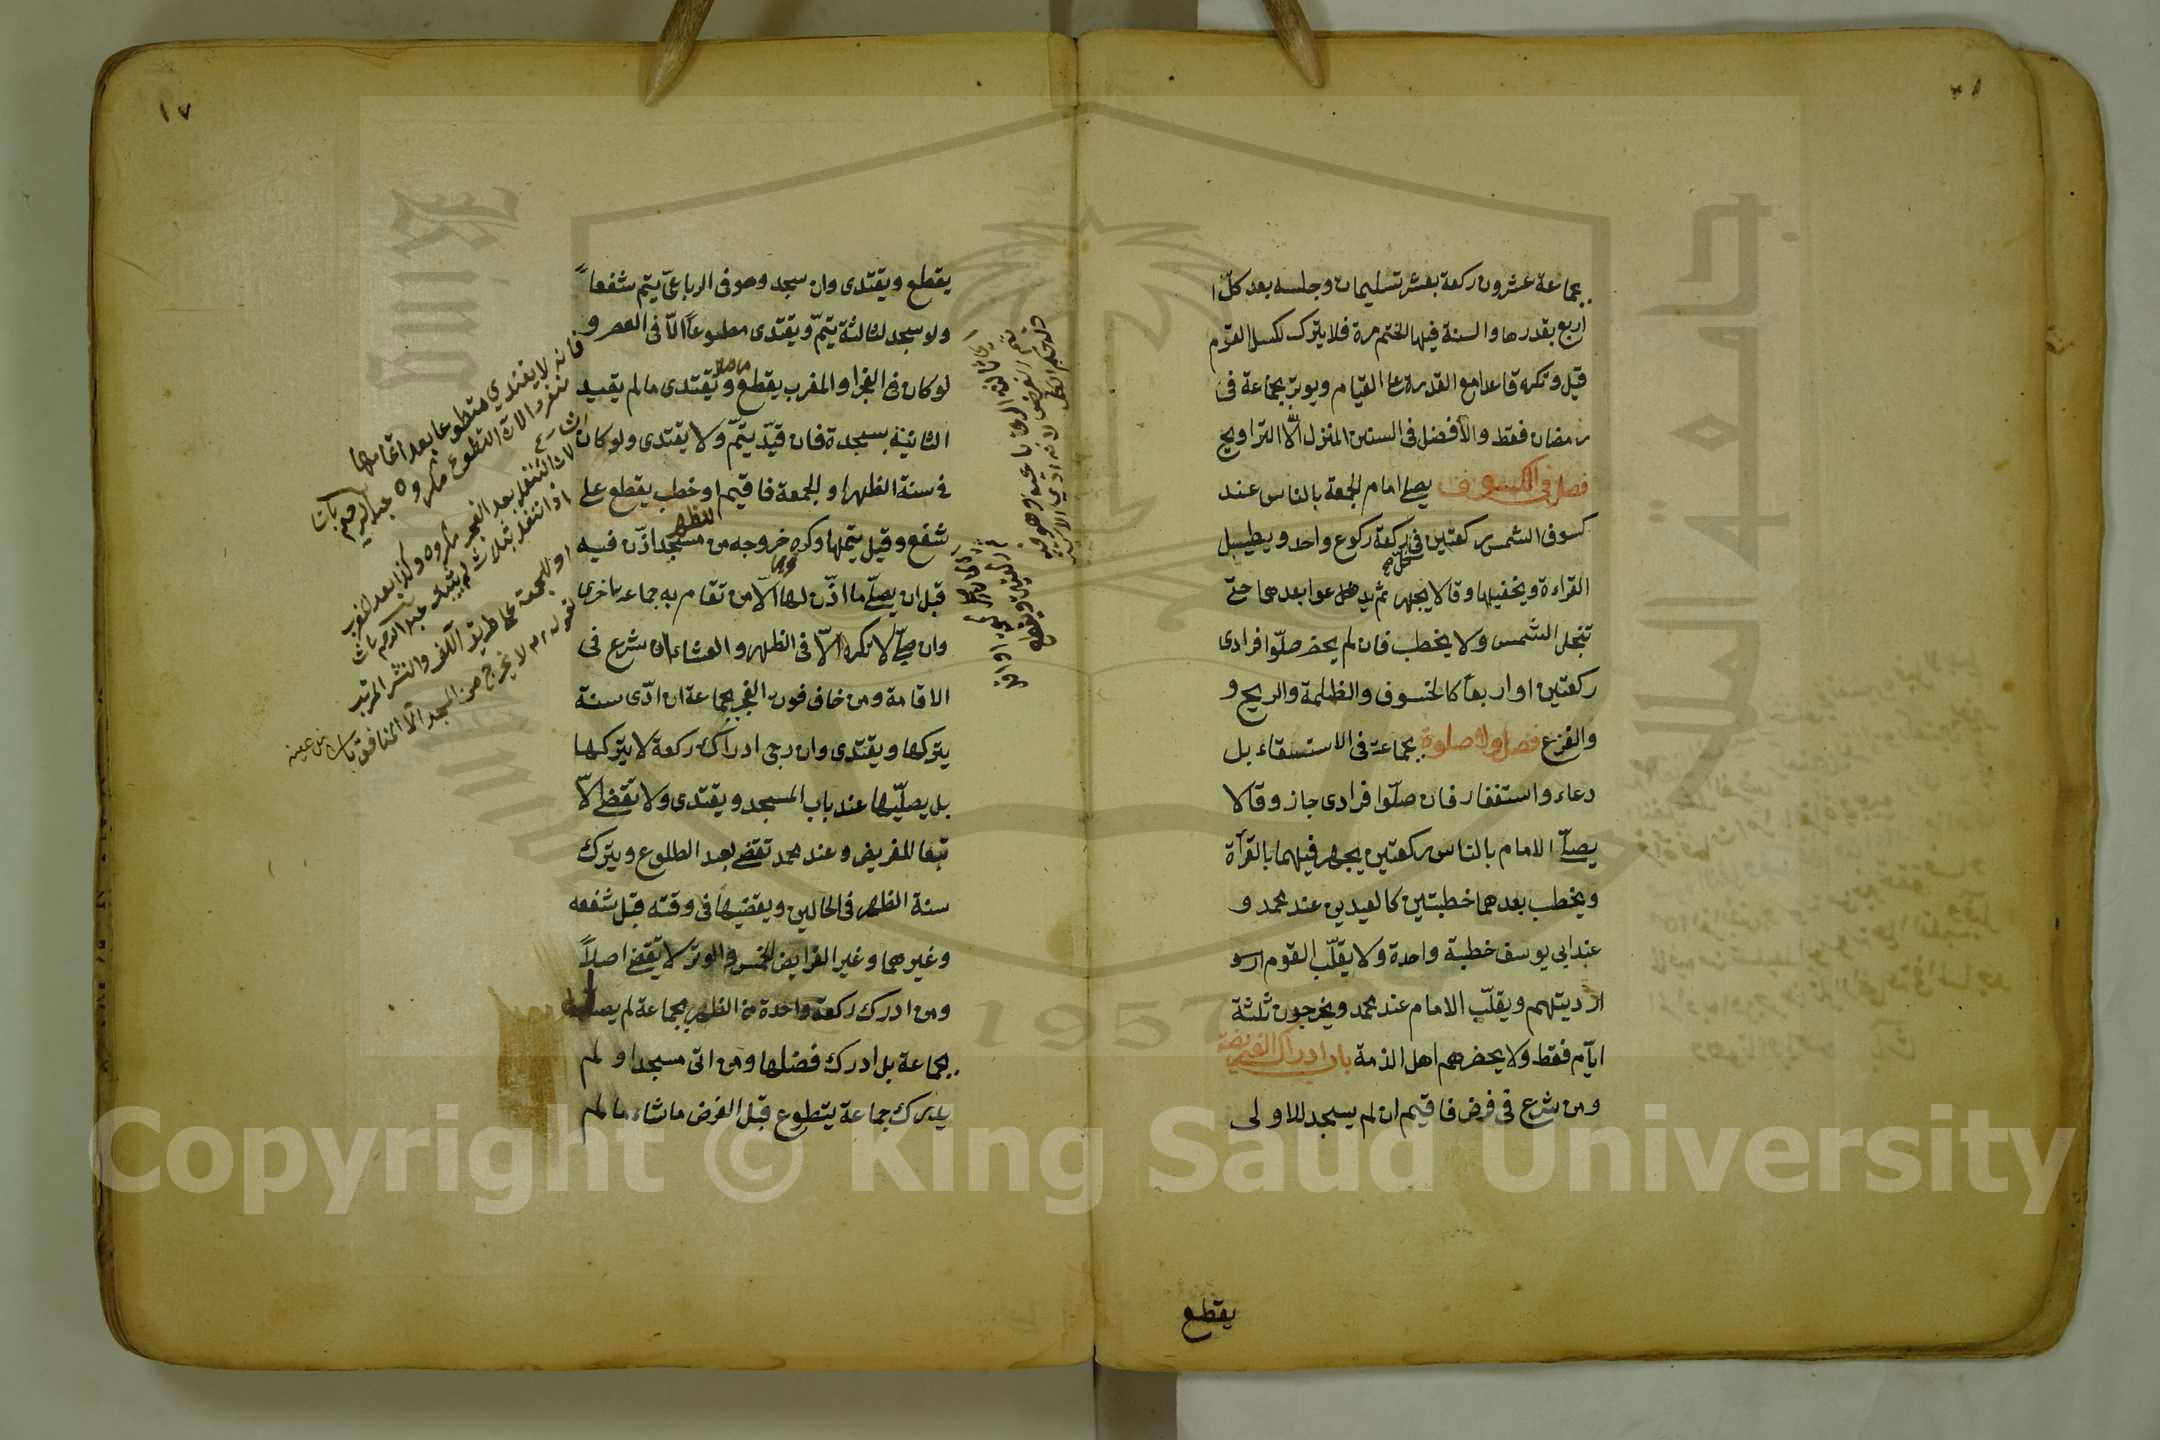 بجماعة عشرون ركعة بعشر تسليمات وجلسه بعد كلّ
اربع بقدرها والسنة فيها الختم مرة فلا يترك لكسل القوم
قيل وتكره قاعدا مع القدرة على القيام ويوتر بجماعة في
رمضان فقط والأفضل في السنن المنزل الّا التراويح
فصل في الكسوف يصلي امام الجمعة بالناس عند
كسوف الشمس ركعتين في كل ركعة ركوع واحد ويطيل
القراءة ويخفيها وقالا يجهر ثم يدعوا بعدهما حتى
تنجلي الشمس ولا يخطب فان لم يحضر صلّوا فرادى
ركعتين او اربعا كالخسوف والظلمة والريح و
والفزع فصل ولا صلوة بجماعة في الاستسقاء بل
دعاء واستغفار فان صلّوا فرادى جاز وقالا
يصلّي الامام بالناس ركعتين يجهر فيهما بالقرآة
ويخطب بعدهما خطبتين كالعيدين عند محمد و
عند ابي يوسف خطبة واحدة ولا يقلّب القوم
ارديتهم ويقلّب الامام عند محمد ويخرجون ثلثة
ايّام فقط ولا يحضرهم اهل الذمة باب ادراك الفريضة
ومن شرع في فرض فاقيم ان لم يسجد للاولى
يقطع
١٧
يقطع ويقتدى وان سجد وهو في الرباعيّ يتم شفعاً
ولو سجد لثالثة يتمّ ويقتدى متطوعاً الّا في العصر و
لو كان في الفجر او المغرب يقطع ويقتدى ما لم يقيد
الثانية بسجدة فان قيّد يتمّ ولا يقتدى ولو كان
في سنة الظهر او الجمعة فاقيم او خطب يقطع على
شفع وقيل يتمها وكره خروجه من مسجد اذّن فيه
قبل ان يصلّي ما اذّن لها الّا من تقام به جماعة اخرى
وان صلّى لا تكره الّا في الظهر والعشاء ان شرع في
الاقامة ومن خاف فوت الفجر بجماعة ان ادّى سنة
يتركها ويقتدى وان رجى ادراك ركعة لا يتركها
بل يصلّيها عند باب المسجد ويقتدى ولا تقضى الّا
تبعا للفرض وعند محمد تقضى بعد الطلوع ويترك
سنة الظهر في الحالين ويقضيها في وقته قبل شفعه
وغيرهما وغير الفرايض الخمس والوتر لا تقضى اصلاً
ومن ادرك ركعة واحدة من الظهر بجماعة لم يصلها
بجماعة بل ادرك فضلها ومن اتى مسجدا و لم
يدرك جماعة يتطوع قبل الفرض ما شاء ما لم
فانه لا يقتدي متطوعا بعد اتمامها
اذ التنفل بثلاث لم
او للجمعة على طريق اللف والنشر المرتب
لا يخرج من المسجد الّا المنافق